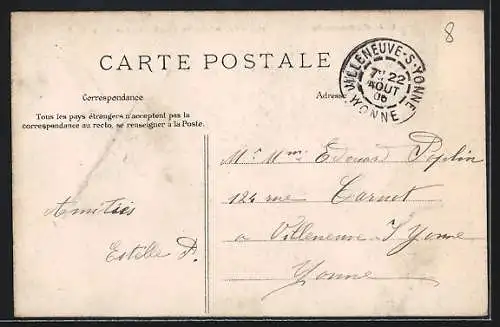 8
CARTE POSTALE
VILLENEUVE-S-YONNE
22
AOUT
06
YONNE
Correspondance
Adresse
Tous les pays étrangers n'acceptent pas la
correspondance au recto, se renseigner à la Poste.
Mr Mme Edouard Poplin
124 rue Carnot
Amitiés
a Villeneuve S/ Yonne
Estelle P.
Yonne